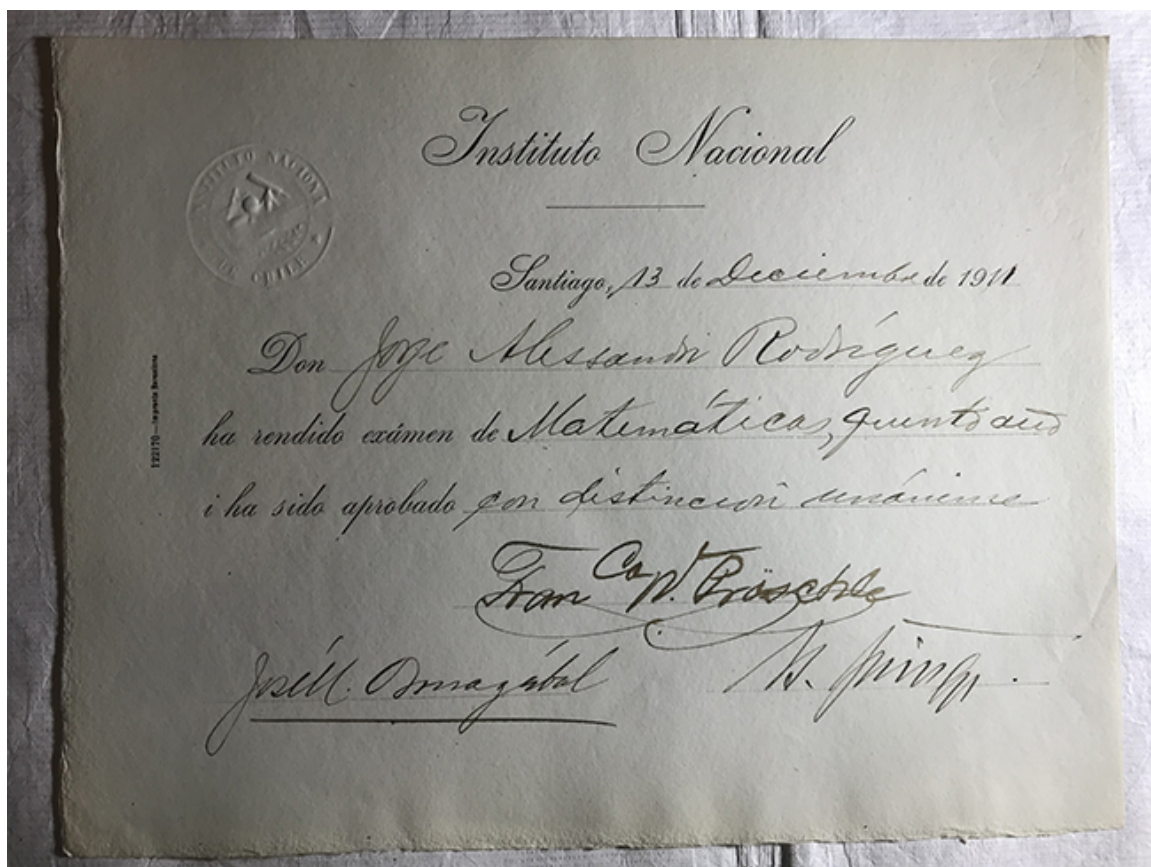 Instituto Nacional
INSTITUTO NACIONAL
DE CHILE
Santiago, 13 de Deciembre de 1911
Don Jorje Alessandri Rodríguez
ha rendido exámen de Matemáticas, quinto año
i ha sido aprobado con distincion unánime
Fran Co W. Pröschle
José M.
122170—Imprenta Barcelona